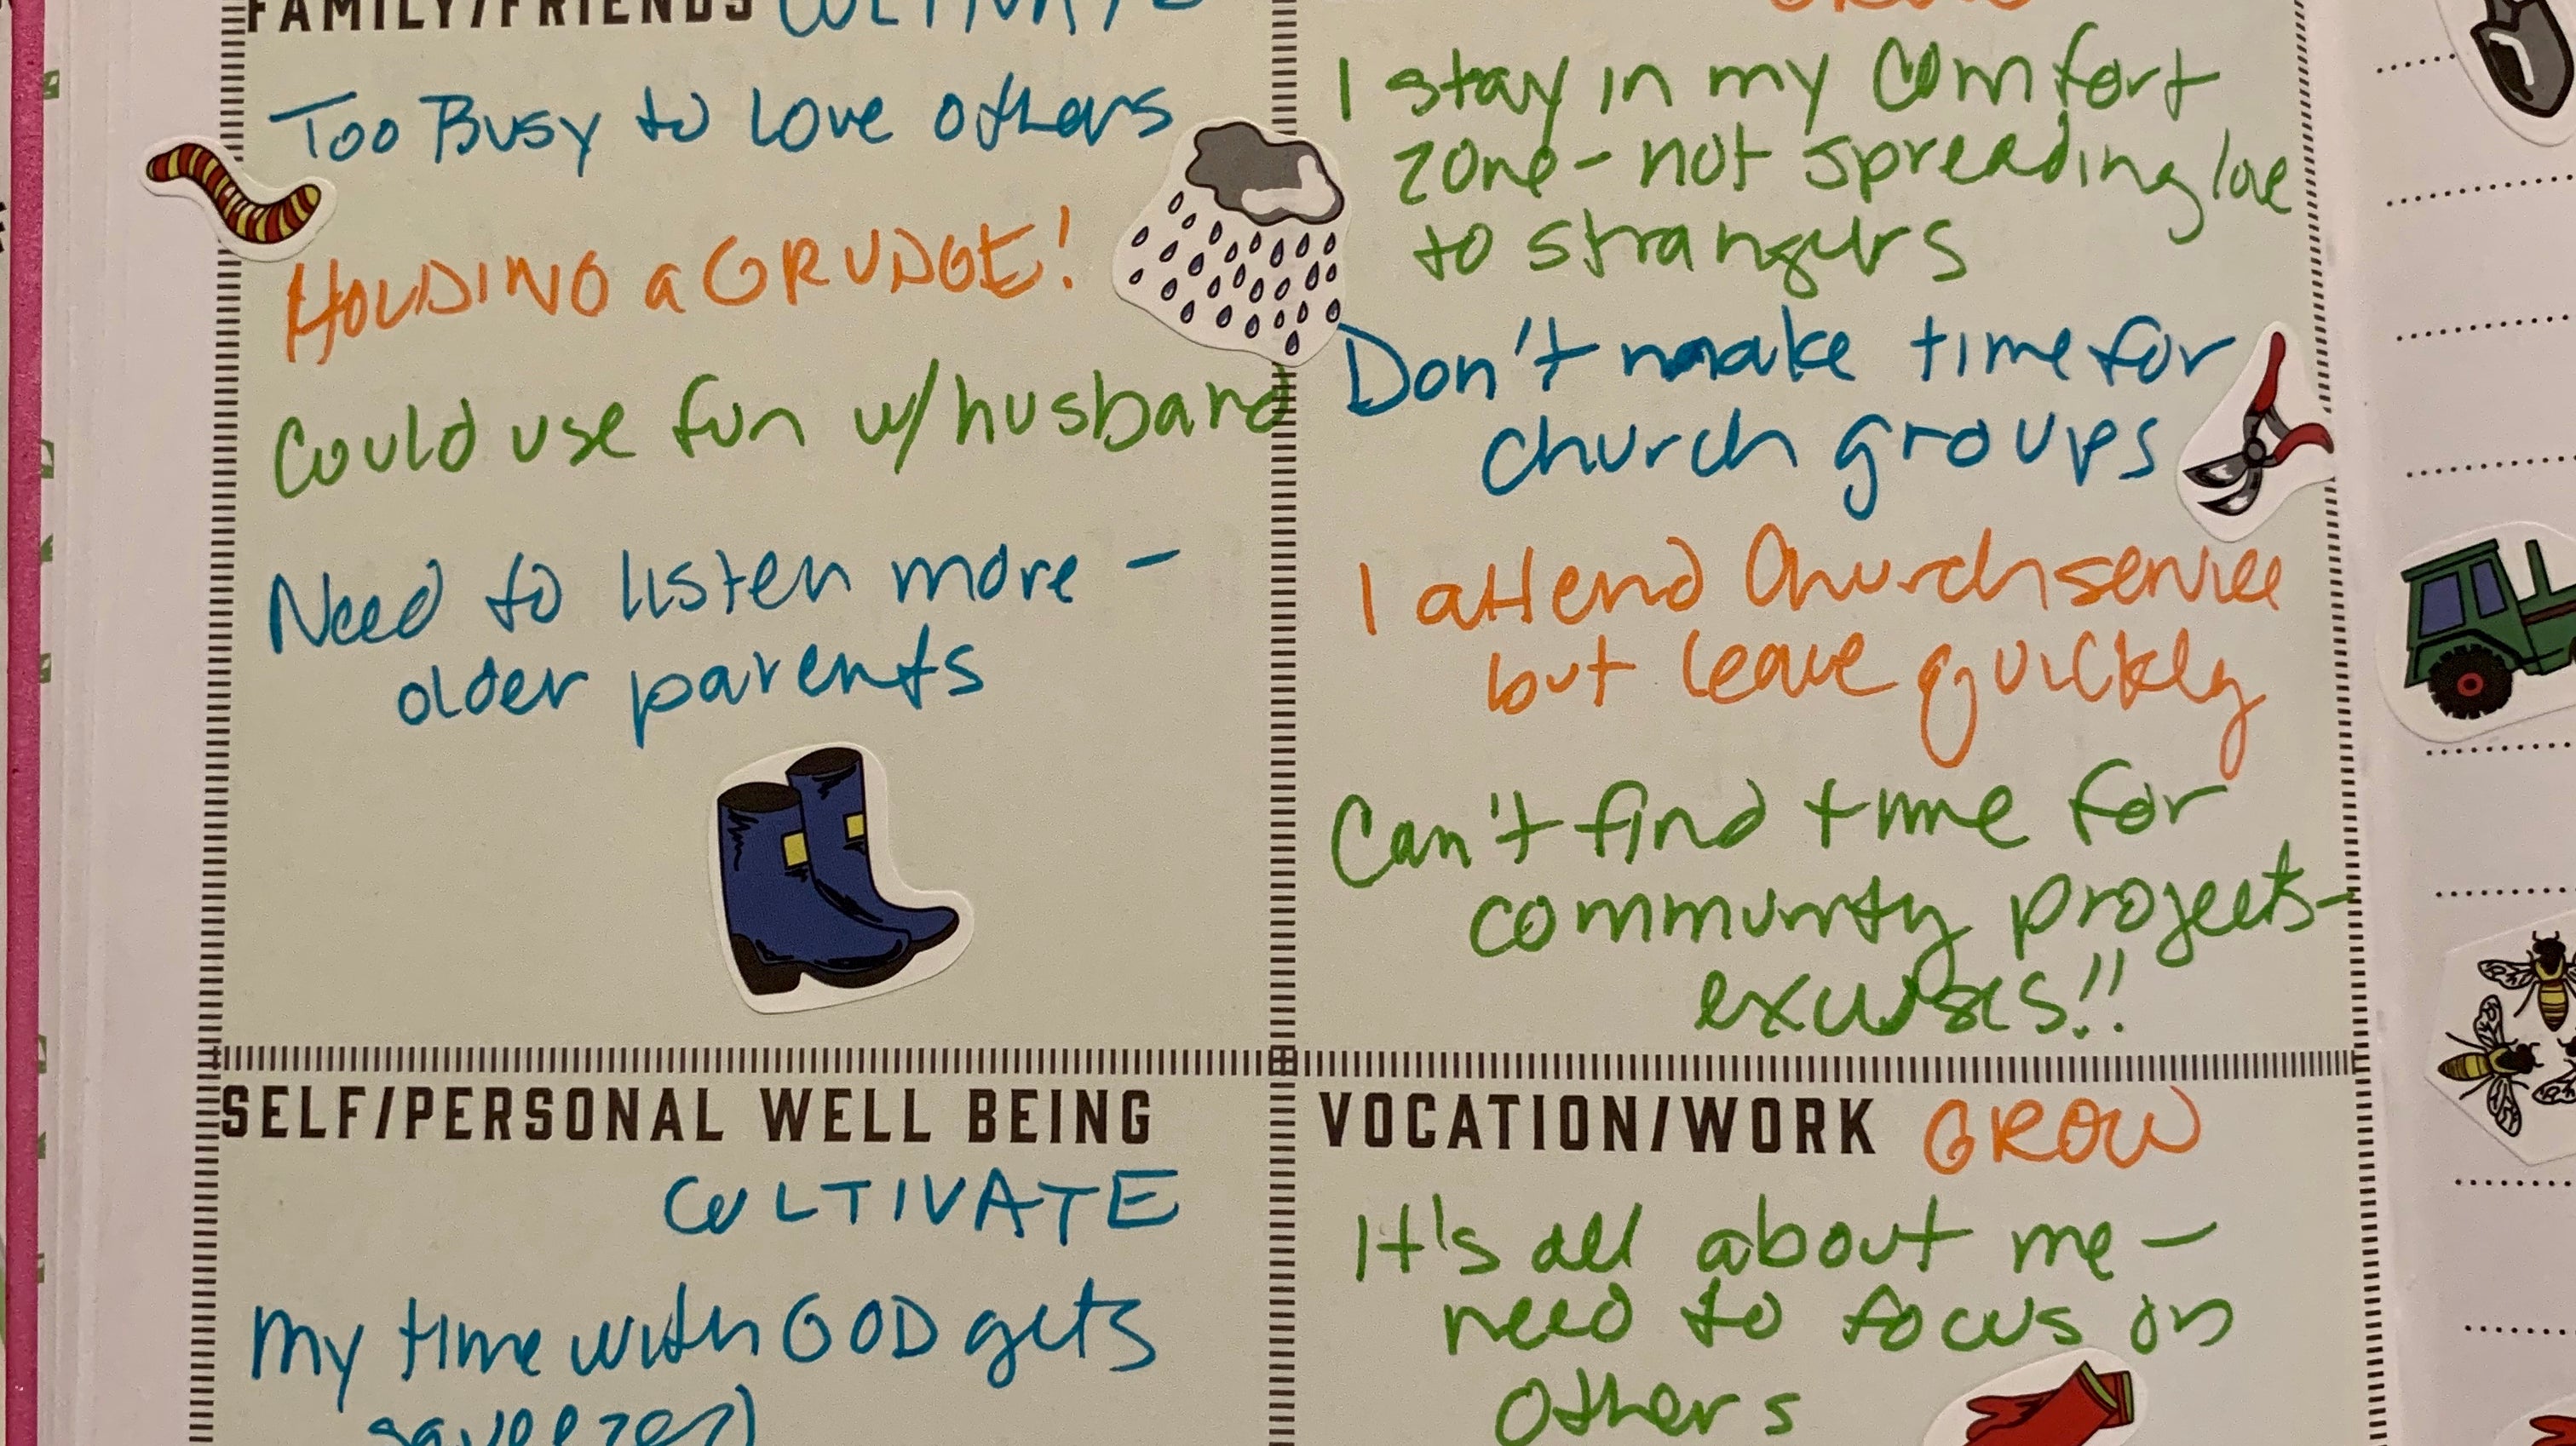 FAMILY/FRIENDS CULTIVATE
Too Busy to love others
HOLDING a GRUDGE!
Could use fun w/husband
Need to listen more -
older parents
GROW
I stay in my comfort
zone - not spreading love
to strangers
Don't make time for
church groups
I attend Church service
but leave quickly
Can't find time for
community projects -
excuses!!
SELF/PERSONAL WELL BEING
CULTIVATE
My time with GOD gets
squeezed
VOCATION/WORK GROW
It's all about me -
need to focus on
others